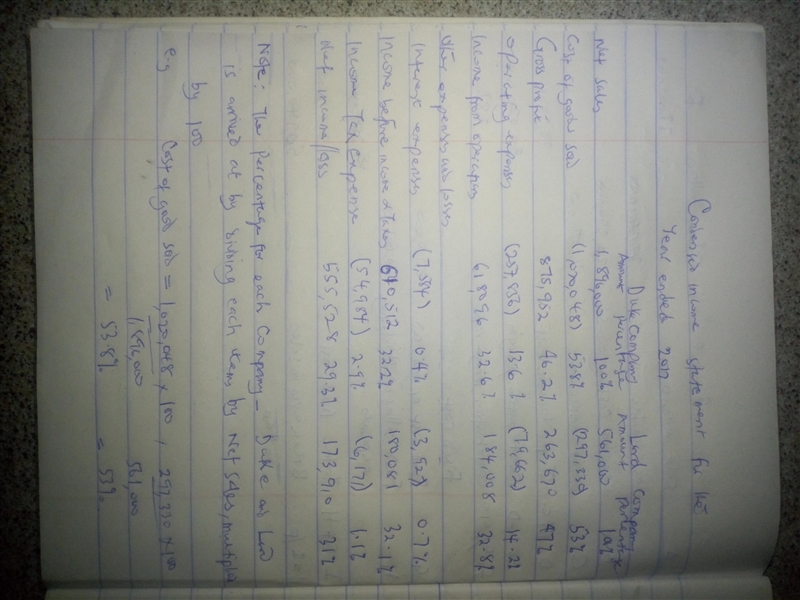 Condensed income statement for the
Year ended 2017
Duke Company Lord Company
Amount percentage Amount percentage
Net sales 1,896,000 100% 561,000 100%
Cost of goods sold (1,020,048) 53.8% (297,330) 53%
Gross profit 875,952 46.2% 263,670 47%
operating expenses (257,856) 13.6% (79,662) 14.2%
Income from operations 618,096 32.6% 184,008 32.8%
Other expenses and losses
Interest expenses (7,584) 0.4% (3,927) 0.7%
Income before income taxes 610,512 32.2% 180,081 32.1%
Income Tax Expense (54,984) 2.9% (6,171) 1.1%
Net income/loss 555,528 29.3% 173,910 31%
Note: The percentage for each Company – Duke and Lord
is arrived at by dividing each items by Net sales, multiplied
by 100
e.g Cost of good sold = 1,020,048 × 100 , 297,330 × 100
1,896,000 561,000
= 53.8% = 53%